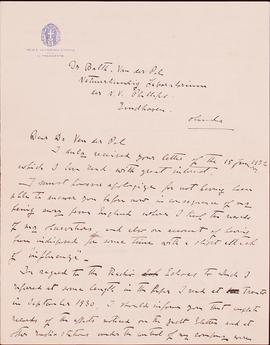 Dr Balth. Van der Pol
Natuurkundig Laboratorium
der N.V. Philips
Eindhoven
Holland
Dear Dr. Van der Pol
I duly received your letter of the 18 Jan 1932
which I have read with great interest.
I must however apologize for not having been
able to answer you before now in consequence of my
being away from England where I had the records
of my observations and also on account of having
been indisposed for some time with a slight attack
of influenza.
In regard to the Radio Echoes to which I
referred at some length in the Paper I read at Trento
in September 1930 I should inform you that
records of the effects noticed on the Yacht Elettra and at
other radio stations under the control of my company were